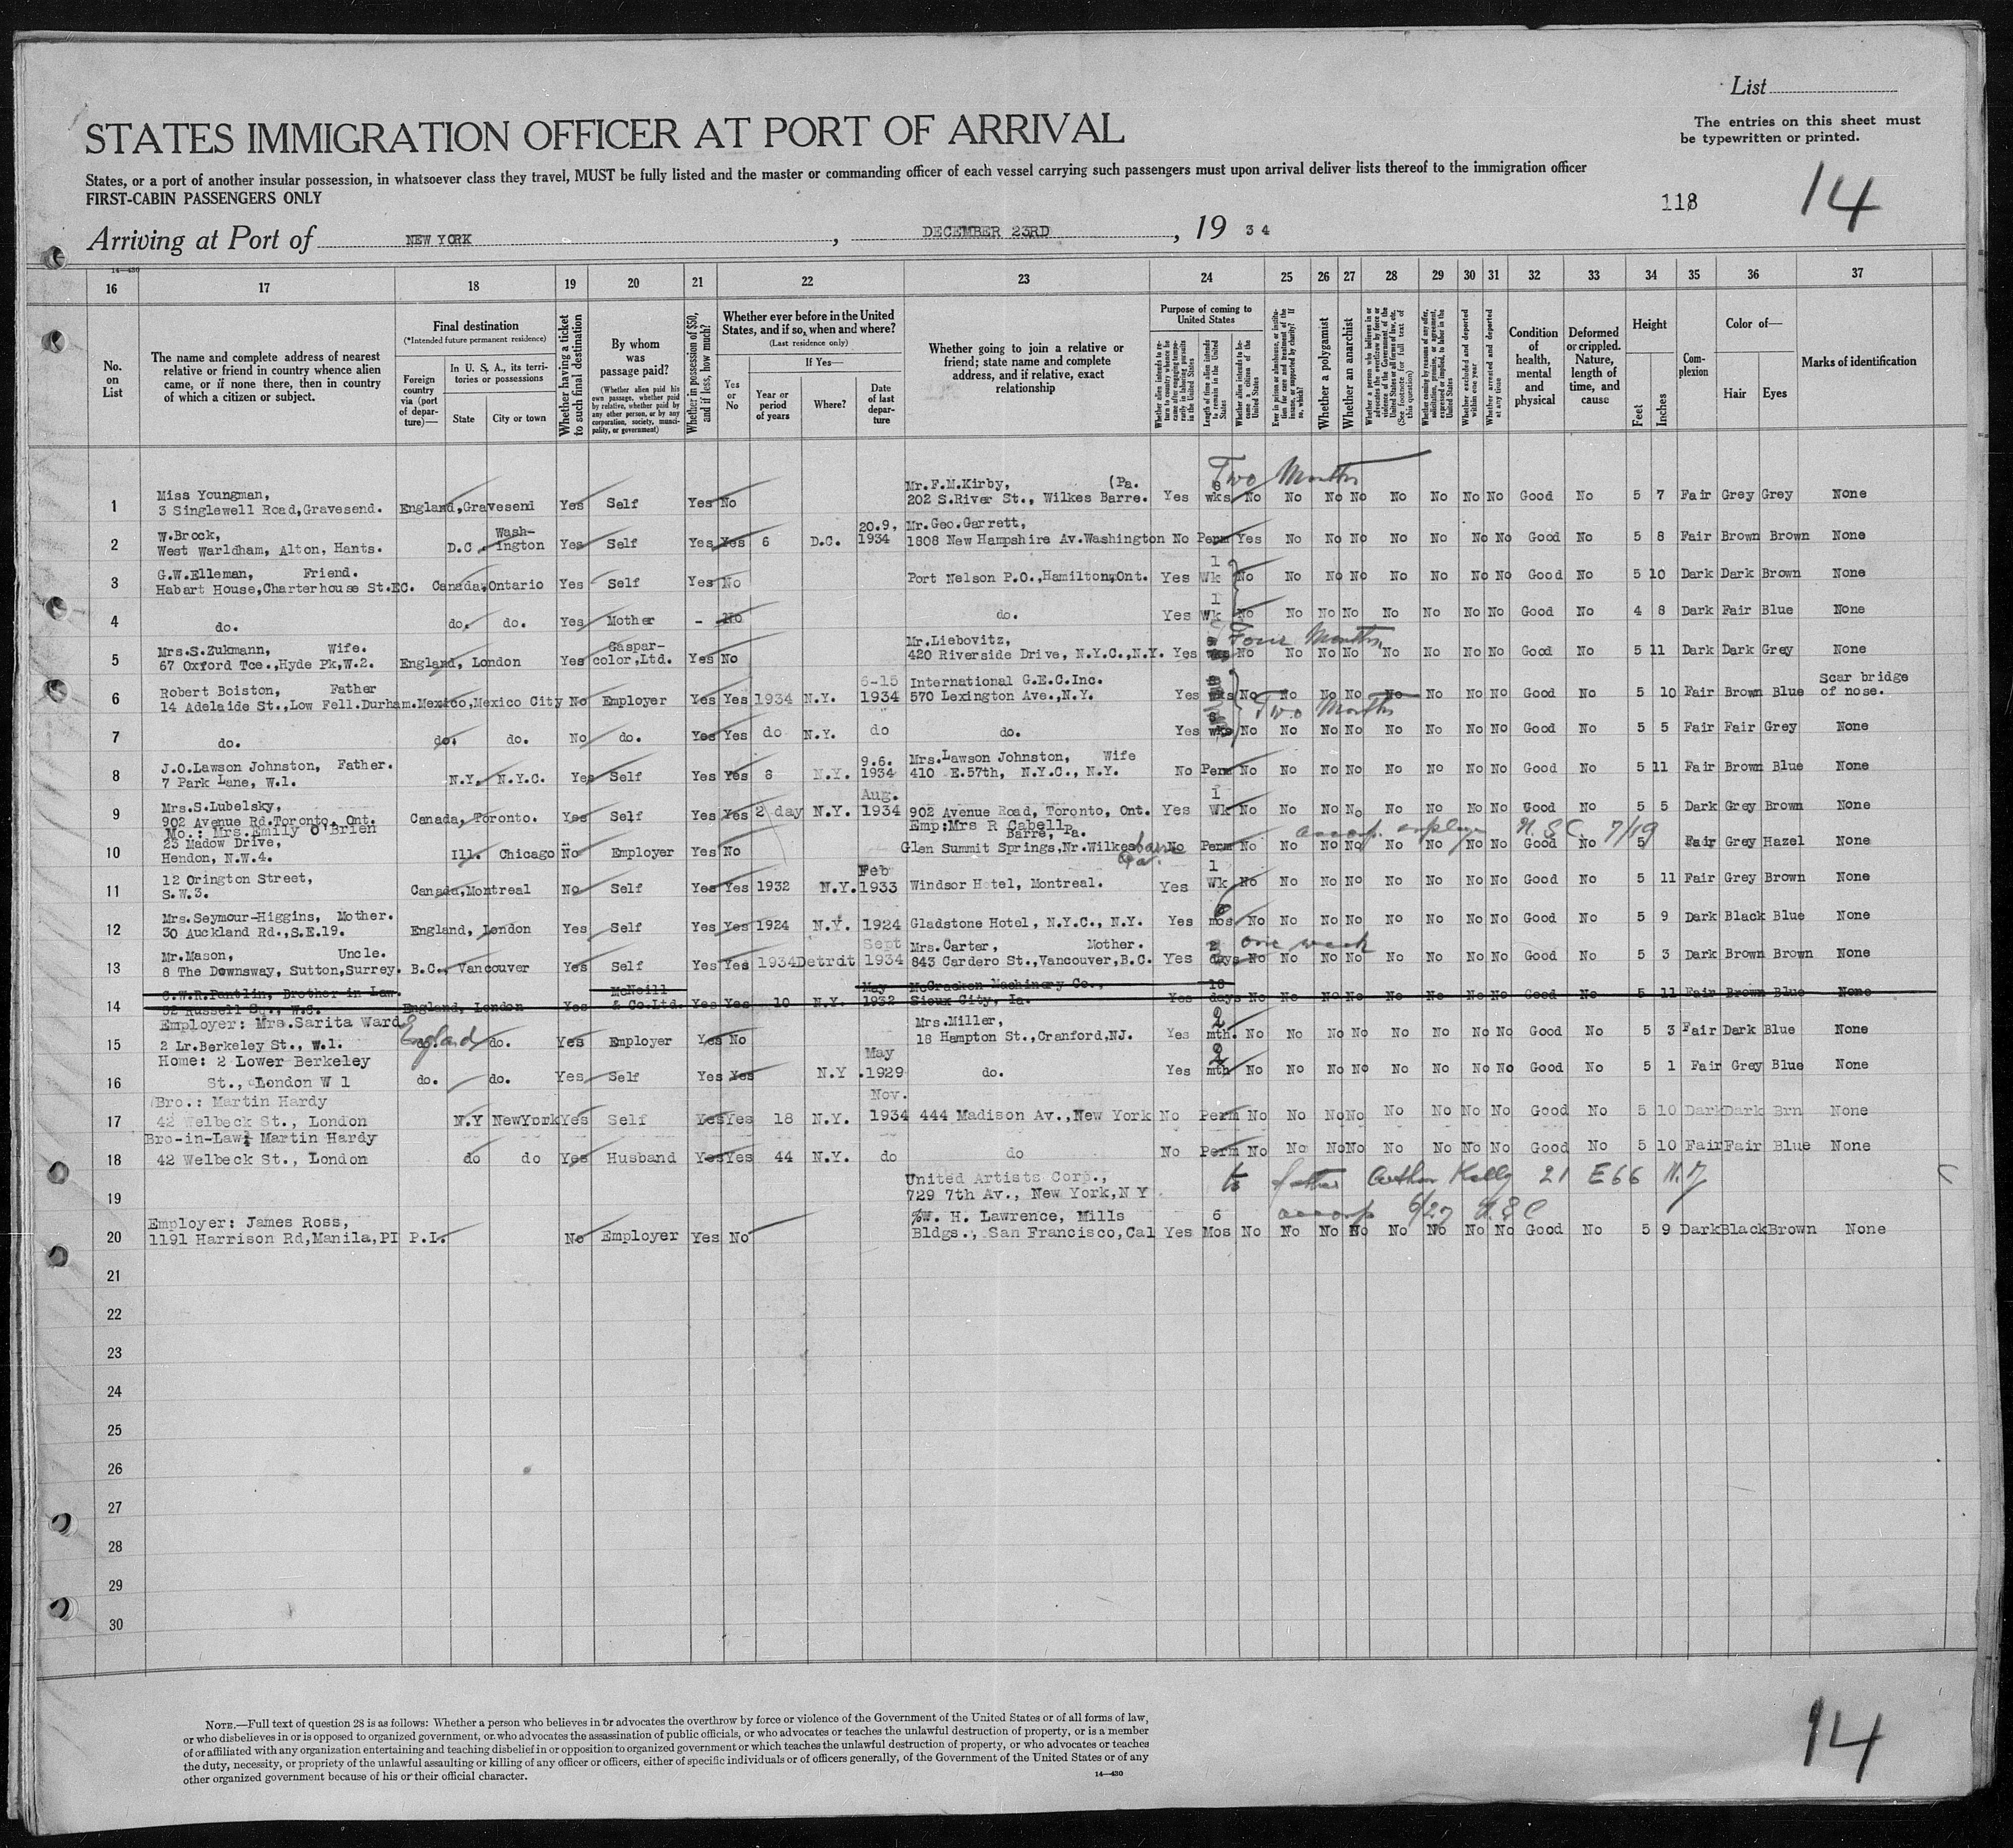 List
STATES IMMIGRATION OFFICER AT PORT OF ARRIVAL
The entries on this sheet must
be typewritten or printed.
States, or a port of another insular possession, in whatsoever class they travel, MUST be fully listed and the master or commanding officer of each vessel carrying such passengers must upon arrival deliver lists thereof to the immigration officer
FIRST-CABIN PASSENGERS ONLY
118 14
Arriving at Port of NEW YORK, DECEMBER 23RD, 19 34
14—430
16 17 18 19 20 21 22 23 24 25 26 27 28 29 30 31 32 33 34 35 36 37
No. on List
The name and complete address of nearest relative or friend in country whence alien came, or if none there, then in country of which a citizen or subject.
Final destination
(*Intended future permanent residence)
Foreign country via (port of departure)—
In U. S. A., its territories or possessions
State City or town
Whether having a ticket to such final destination
By whom was passage paid?
(Whether alien paid his own passage, whether paid by relative, whether paid by any other person, or by any corporation, society, municipality, or government)
Whether in possession of $50, and if less, how much?
Whether ever before in the United States, and if so, when and where?
(Last residence only)
Yes or No
If Yes—
Year or period of years Where? Date of last departure
Whether going to join a relative or friend; state name and complete address, and if relative, exact relationship
Purpose of coming to United States
Whether alien intends to return to country whence he came after engaging temporarily in laboring pursuits in the United States
Length of time alien intends to remain in the United States
Whether alien intends to become a citizen of the United States
Ever in prison or almshouse, or institution for care and treatment of the insane, or supported by charity? If so, which?
Whether a polygamist
Whether an anarchist
Whether a person who believes in or advocates the overthrow by force or violence of the Government of the United States or all forms of law, etc. (See footnote for full text of this question)
Whether coming by reasons of any offer, solicitation, promise, or agreement, expressed or implied, to labor in the United States
Whether excluded and deported within one year
Whether arrested and deported at any time
Condition of health, mental and physical
Deformed or crippled. Nature, length of time, and cause
Height
Feet Inches
Complexion
Color of—
Hair Eyes
Marks of identification
Two Months
1 Miss Youngman, 3 Singlewell Road,Gravesend. England,Gravesend Yes Self Yes No Mr.F.M.Kirby, (Pa. 202 S.River St., Wilkes Barre. Yes wks No No No No No No No No Good No 5 7 Fair Grey Grey None
2 W.Brock, West Warldham, Alton, Hants. D.C. Wash-ington Yes Self Yes Yes 6 D.C. 20.9, 1934 Mr.Geo.Garrett, 1808 New Hampshire Av.Washington No Perm Yes No No No No No No No Good No 5 8 Fair Brown Brown None
3 G.W.Elleman, Friend. Habart House,Charterhouse St.EC. Canada,Ontario Yes Self Yes No Port Nelson P.O.,Hamilton,Ont. Yes 1 Wk No No No No No No No No Good No 5 10 Dark Dark Brown None
4 do. do. do. Yes Mother - No do. Yes 1 Wk No No No No No No No No Good No 4 8 Dark Fair Blue None
Four Months
5 Mrs.S.Zukmann, Wife. 67 Oxford Tce.,Hyde Pk,W.2. England, London Yes Gaspar-color,Ltd. Yes No Mr.Liebovitz, 420 Riverside Drive, N.Y.C.,N.Y. Yes wks No No No No No No No No Good No 5 11 Dark Dark Grey None
6 Robert Boiston, Father 14 Adelaide St.,Low Fell.Durham. Mexico,Mexico City No Employer Yes Yes 1934 N.Y. 6-15 1934 International G.E.C.Inc. 570 Lexington Ave.,N.Y. Yes wks No No No No No No No No Good No 5 10 Fair Brown Blue Scar bridge of nose.
Two Months
7 do. do. do. No do. Yes Yes do N.Y. do do. Yes wks No No No No No No No No Good No 5 5 Fair Fair Grey None
8 J.O.Lawson Johnston, Father. 7 Park Lane, W.1. N.Y. N.Y.C. Yes Self Yes Yes 8 N.Y. 9.6. 1934 Mrs.Lawson Johnston, Wife 410 E.57th, N.Y.C., N.Y. No Perm No No No No No No No No Good No 5 11 Fair Brown Blue None
9 Mrs.S.Lubelsky, 902 Avenue Rd.Toronto, Ont. Canada, Toronto. Yes Self Yes Yes 2 day N.Y. Aug. 1934 902 Avenue Road, Toronto, Ont. Yes 1 Wk No No No No No No No No Good No 5 5 Dark Grey Brown None
10 Mo.: Mrs.Emily O'Brien 23 Madow Drive, Hendon, N.W.4. Ill. Chicago No Employer Yes No Emp:Mrs R Cabell Barre, Pa. Glen Summit Springs,Nr.Wilkesbarre Pa. No Perm No No No No No No No No Good No 5 Fair Grey Hazel None
7/19
11 12 Orington Street, S.W.3. Canada,Montreal No Self Yes Yes 1932 N.Y. Feb 1933 Windsor Hotel, Montreal. Yes 1 Wk No No No No No No No No Good No 5 11 Fair Grey Brown None
12 Mrs.Seymour-Higgins, Mother. 30 Auckland Rd.,S.E.19. England, London Yes Self Yes Yes 1924 N.Y. 1924 Gladstone Hotel, N.Y.C., N.Y. Yes 6 mos No No No No No No No No Good No 5 9 Dark Black Blue None
one week
13 Mr.Mason, Uncle. 8 The Downsway, Sutton,Surrey. B.C., Vancouver Yes Self Yes Yes 1934 Detroit Sept 1934 Mrs.Carter, Mother. 843 Cardero St.,Vancouver,B.C. Yes 2 days No No No No No No No No Good No 5 3 Dark Brown Brown None
14 C.W.R.Pantlin, Brother in Law. 52 Russell Sq., W.C. England, London Yes McNeill & Co.Ltd. Yes Yes 10 N.Y. May 1932 McCracken Machinery Co., Sioux City, Ia. Yes 10 days No No No No No No No No Good No 5 11 Fair Brown Blue None
15 Employer: Mrs.Sarita Ward 2 Lr.Berkeley St., W.1. England do. do. Yes Employer Yes No Mrs.Miller, 18 Hampton St.,Cranford,NJ. Yes 2 mth. No No No No No No No No Good No 5 3 Fair Dark Blue None
16 Home: 2 Lower Berkeley St., London W 1 do. do. Yes Self Yes Yes N.Y. May 1929 do. Yes 2 mth No No No No No No No No Good No 5 1 Fair Grey Blue None
17 Bro.: Martin Hardy 42 Welbeck St., London N.Y NewYork Yes Self Yes Yes 18 N.Y. Nov. 1934 444 Madison Av.,New York No Perm No No No No No No No No Good No 5 10 Dark Dark Brn None
18 Bro-in-Law: Martin Hardy 42 Welbeck St., London do do Yes Husband Yes Yes 44 N.Y. do do No Perm No No No No No No No No Good No 5 10 Fair Fair Blue None
19 United Artists Corp., 729 7th Av., New York,N Y to father Arthur Kelly 21 E 66 N.Y
6/27
20 Employer: James Ross, 1191 Harrison Rd,Manila,PI P.I. No Employer Yes No %W. H. Lawrence, Mills Bldgs., San Francisco,Cal Yes 6 Mos No No No No No No No No Good No 5 9 Dark Black Brown None
21
22
23
24
25
26
27
28
29
30
NOTE.—Full text of question 28 is as follows: Whether a person who believes in or advocates the overthrow by force or violence of the Government of the United States or of all forms of law,
or who disbelieves in or is opposed to organized government, or who advocates the assassination of public officials, or who advocates or teaches the unlawful destruction of property, or is a member
of or affiliated with any organization entertaining and teaching disbelief in or opposition to organized government or which teaches the unlawful destruction of property, or who advocates or teaches
the duty, necessity, or propriety of the unlawful assaulting or killing of any officer or officers, either of specific individuals or of officers generally, of the Government of the United States or of any
other organized government because of his or their official character.
14—430
14